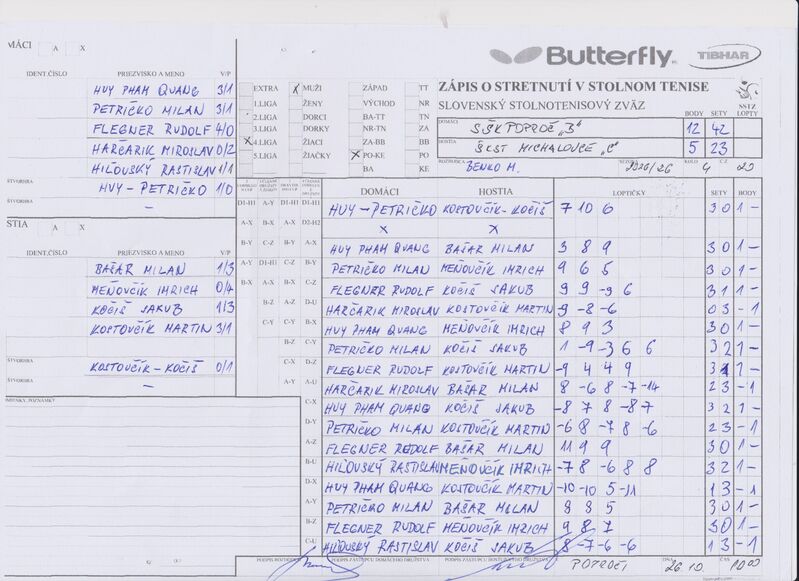 Butterfly
TIBHAR
MÁCI A X
IDENT.ČÍSLO PRIEZVISKO A MENO V/P
HUY PHAM QUANG 3/1
PETRIČKO MILAN 3/1
FLEGNER RUDOLF 4/0
HARČARIK MIROSLAV 0/2
HIĽOVSKÝ RASTISLAV 1/1
ŠTVORHRA
HUY - PETRIČKO 1/0
–
STIA A X
IDENT.ČÍSLO PRIEZVISKO A MENO V/P
BAŠAR MILAN 1/3
MEŇOVČÍK IMRICH 0/4
KOČIŠ JAKUB 1/3
KOSTOVČÍK MARTIN 3/1
ŠTVORHRA
KOSTOVČÍK - KOČIŠ 0/1
–
EXTRA X MUŽI ZÁPAD TT
1.LIGA ŽENY VÝCHOD NR
2.LIGA DORCI BA-TT TN
3.LIGA DORKY NR-TN ZA
X 4.LIGA ŽIACI ZA-BB BB
5.LIGA ŽIAČKY X PO-KE PO
BA KE
ZÁPIS O STRETNUTÍ V STOLNOM TENISE
SLOVENSKÝ STOLNOTENISOVÝ ZVÄZ
SSTZ
BODY SETY LOPTY
DOMÁCI ŠŠK POPROČ „B" 12 42
HOSTIA ŠKST MICHALOVCE „C" 5 23
ROZHODCA BENKO M. KOLO 4 Č.Z. 20
DOMÁCI HOSTIA LOPTIČKY SETY BODY
HUY - PETRIČKO KOSTOVČÍK - KOČIŠ 7 10 6 3 0 1 -
x x
HUY PHAM QUANG BAŠAR MILAN 3 8 9 3 0 1 -
PETRIČKO MILAN MEŇOVČÍK IMRICH 9 6 5 3 0 1 -
FLEGNER RUDOLF KOČIŠ JAKUB 9 9 -9 6 3 1 1 -
HARČARIK MIROSLAV KOSTOVČÍK MARTIN -9 -8 -6 0 3 - 1
HUY PHAM QUANG MEŇOVČÍK IMRICH 8 9 3 3 0 1 -
PETRIČKO MILAN KOČIŠ JAKUB 1 -9 -3 6 6 3 2 1 -
FLEGNER RUDOLF KOSTOVČÍK MARTIN -9 4 4 9 3 1 1 -
HARČARIK MIROSLAV BAŠAR MILAN 8 -6 8 -7 -14 2 3 - 1
HUY PHAM QUANG KOČIŠ JAKUB -8 7 8 -8 7 3 2 1 -
PETRIČKO MILAN KOSTOVČÍK MARTIN -6 8 -7 8 -6 2 3 - 1
FLEGNER RUDOLF BAŠAR MILAN 11 9 9 3 0 1 -
HIĽOVSKÝ RASTISLAV MEŇOVČÍK IMRICH -7 8 -6 8 8 3 2 1 -
HUY PHAM QUANG KOSTOVČÍK MARTIN -10 -10 5 -11 1 3 - 1
PETRIČKO MILAN BAŠAR MILAN 8 8 5 3 0 1 -
FLEGNER RUDOLF MEŇOVČÍK IMRICH 9 8 7 3 0 1 -
HIĽOVSKÝ RASTISLAV KOČIŠ JAKUB 8 -7 -6 -6 1 3 - 1
PODPIS ZÁSTUPCU DOMÁCEHO DRUŽSTVA PODPIS ZÁSTUPCU HOSŤUJÚCEHO DRUŽSTVA POPROČI 26.10.